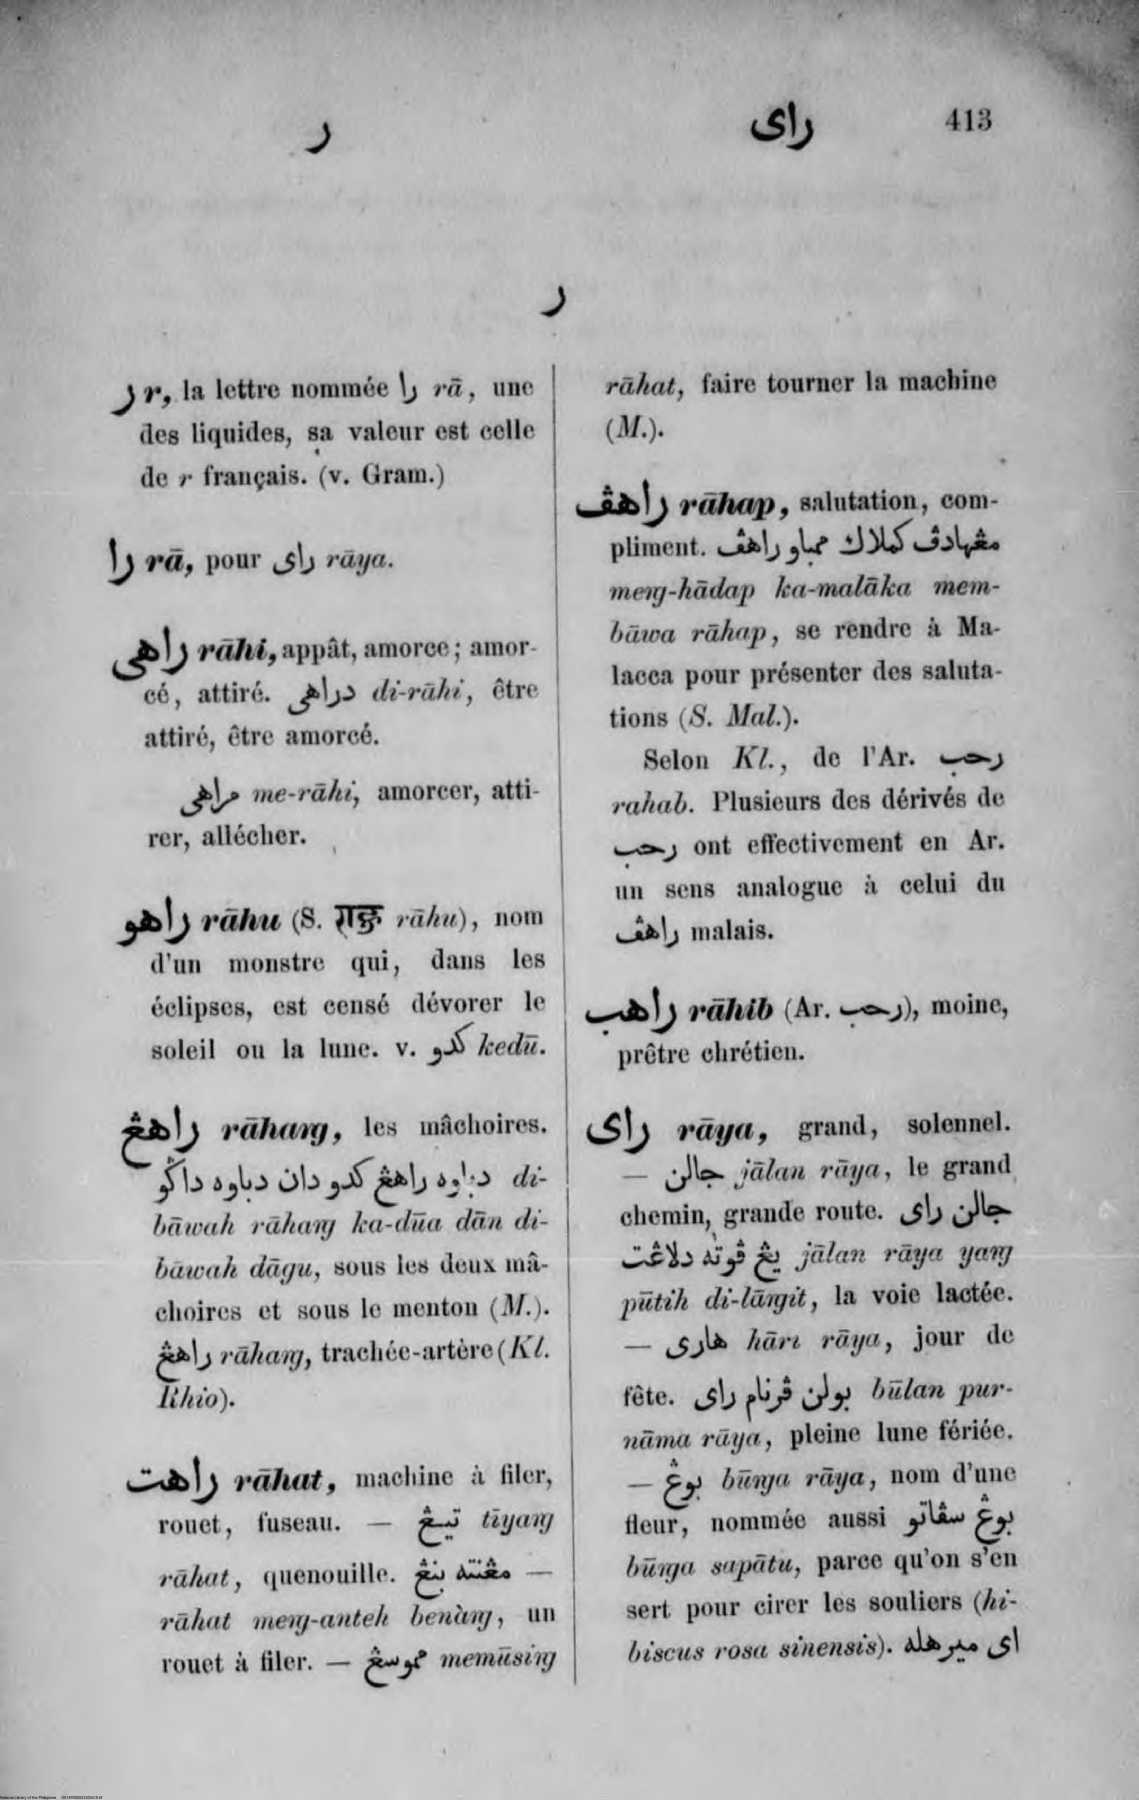 ر
راى
413
ر
ر r, la lettre nommée را rā, une
des liquides, sa valeur est celle
de r français. (v. Gram.)
را rā, pour راى rāya.
راهى rāhi, appât, amorce; amor-
cé, attiré. دراهى di-rāhi, être
attiré, être amorcé.
مراهى me-rāhi, amorcer, atti-
rer, allécher.
راهو rāhu (S. राहु rāhu), nom
d'un monstre qui, dans les
éclipses, est censé dévorer le
soleil ou la lune. v. كدو kedū.
راهڠ rāhaŋg, les mâchoires.
دباوه راهڠ كدو دان دباوه داڬو di-
bāwah rāhaŋg ka-dūa dān di-
bāwah dāgu, sous les deux mâ-
choires et sous le menton (M.).
راهڠ rāhaŋg, trachée-artère (Kl.
Rhio).
راهت rāhat, machine à filer,
rouet, fuseau. — تيڠ tīyaŋg
rāhat, quenouille. مڠنته بنڠ —
rāhat meŋg-anteh benàŋg, un
rouet à filer. — مموسڠ memūsiŋg
rāhat, faire tourner la machine
(M.).
راهڤ rāhap, salutation, com-
pliment. مڠهادڤ كملاك ممباو راهڤ
meŋg-hādap ka-malāka mem-
bāwa rāhap, se rendre à Ma-
lacca pour présenter des saluta-
tions (S. Mal.).
Selon Kl., de l'Ar. رحب
rahab. Plusieurs des dérivés de
رحب ont effectivement en Ar.
un sens analogue à celui du
راهڤ malais.
راهب rāhib (Ar. رحب), moine,
prêtre chrétien.
راى rāya, grand, solennel.
— جالن jālan rāya, le grand
chemin, grande route. جالن راى
يڠ ڤوته دلاڠت jālan rāya yaŋg
pūtih di-lāŋgit, la voie lactée.
— هارى hāri rāya, jour de
fête. بولن ڤرنام راى būlan pur-
nāma rāya, pleine lune fériée.
— بوڠ būŋga rāya, nom d'une
fleur, nommée aussi بوڠ سڤاتو
būŋga sapātu, parce qu'on s'en
sert pour cirer les souliers (hi-
biscus rosa sinensis). اى ميرهله